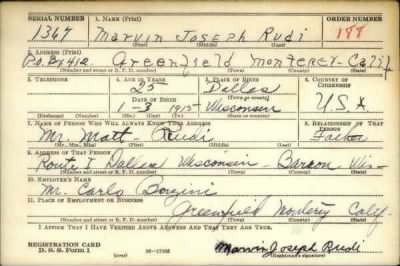 SERIAL NUMBER 1. NAME (Print) ORDER NUMBER
1367 Marvin Joseph Rudi 188
(First) (Middle) (Last)
2. ADDRESS (Print)
P.O. Bx 412 Greenfield Monterey Calif
(Number and street or R. F. D. number) (Town) (County) (State)
3. TELEPHONE 4. AGE IN YEARS 5. PLACE OF BIRTH 6. COUNTRY OF CITIZENSHIP
25 Dallas
DATE OF BIRTH (Town or county)
1-3 1915 Wisconsin U.S.A
(Exchange) (Number) (Mo.) (Day) (Yr.) (State or country)
7. NAME OF PERSON WHO WILL ALWAYS KNOW YOUR ADDRESS 8. RELATIONSHIP OF THAT PERSON
Mr. Matt Rudi Father
(Mr., Mrs., Miss) (First) (Middle) (Last)
9. ADDRESS OF THAT PERSON
Route 1 Dallas Wisconsin - Barron Wis-
(Number and street or R. F. D. number) (Town) (County) (State)
10. EMPLOYER'S NAME
Mr. Carlo
11. PLACE OF EMPLOYMENT OR BUSINESS
Greenfield Monterey Calif.
(Number and street or R. F. D. number) (Town) (County) (State)
I AFFIRM THAT I HAVE VERIFIED ABOVE ANSWERS AND THAT THEY ARE TRUE.
REGISTRATION CARD
D. S. S. Form 1 (over) 16-17105 Marvin Joseph Rudi
(Registrant's signature)